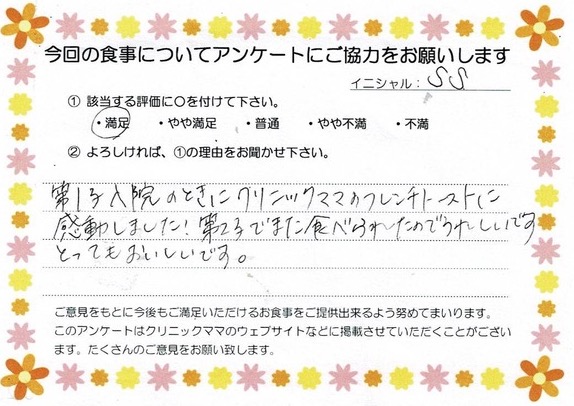 今回の食事についてアンケートにご協力をお願いします
イニシャル：SS
① 該当する評価に○を付けて下さい。
・満足 ・やや満足 ・普通 ・やや不満 ・不満
② よろしければ、①の理由をお聞かせ下さい。
第1子入院のときにクリニックママのフレンチトーストに
感動しました！第2子でまた食べられたのでうれしいです
とってもおいしいです。
ご意見をもとに今後もご満足いただけるお食事をご提供出来るよう努めてまいります。
このアンケートはクリニックママのウェブサイトなどに掲載させていただくことがござい
ます。たくさんのご意見をお願い致します。